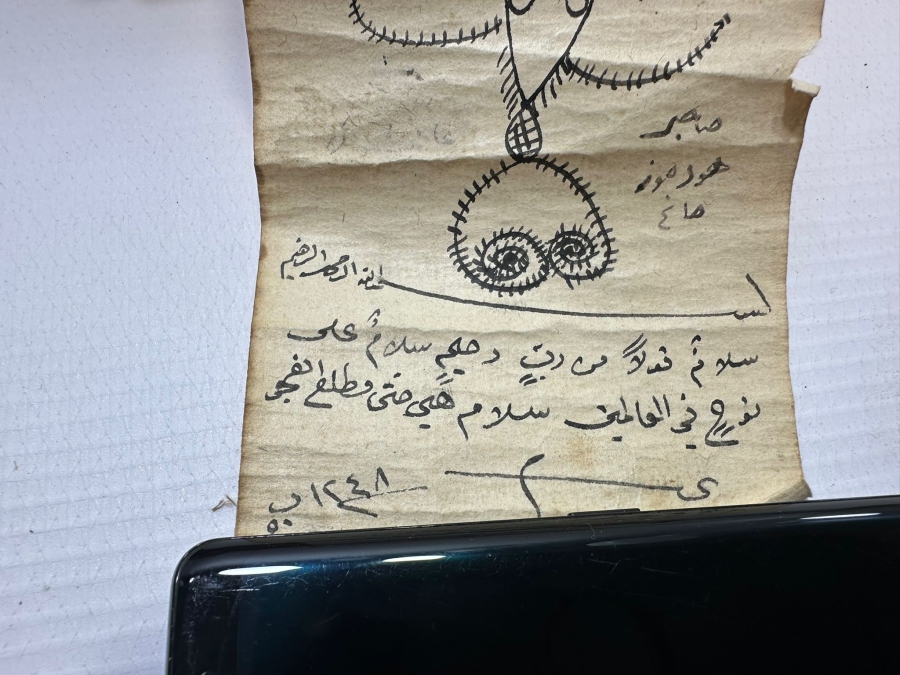 صاجر
هود هود
هانج
بسم الله الرحمن الرحيم
سلامٌ قولاً من ربٍّ رحيمٍ سلامٌ على
نوحٍ في العالمين سلام هي حتى مطلع الفجر
١٢٤٨